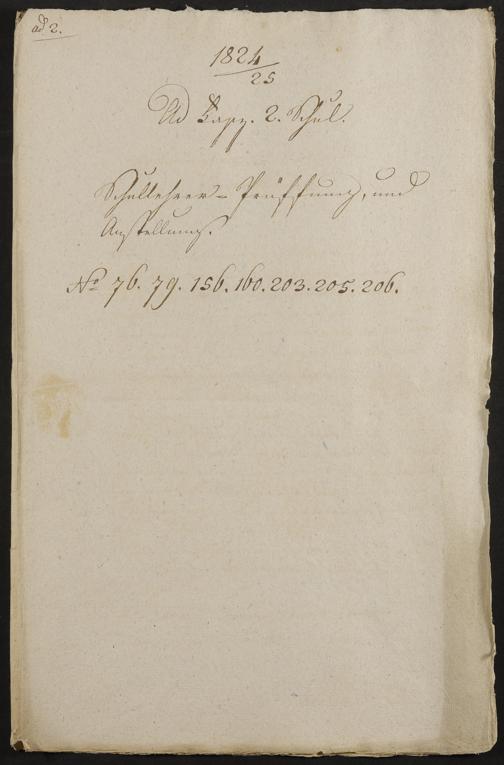 ad 2.
1824/25
Ad Kapp. 2. Schul.
Schullehrer-Prüffung, und
Anstellung.
No 76. 79. 156. 160. 203. 205. 206.